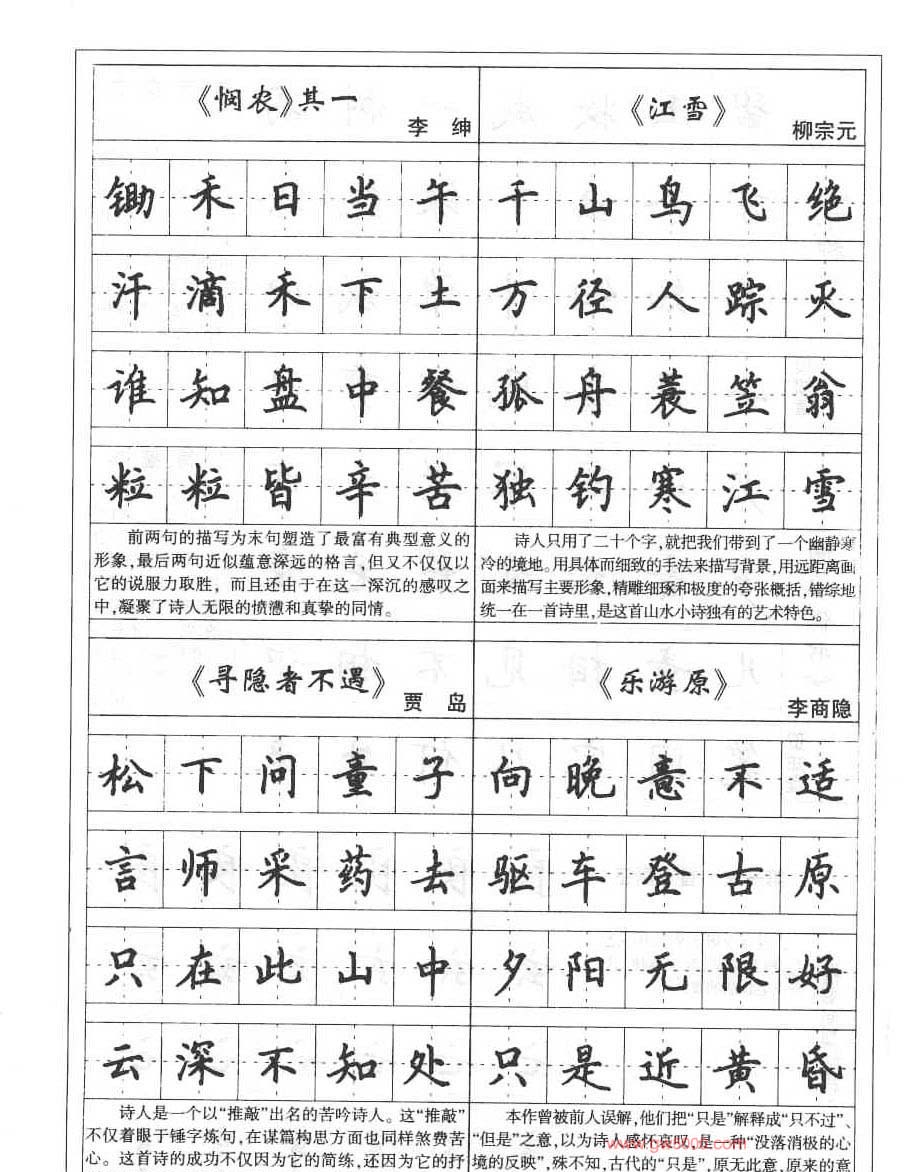 《悯农》其一
李 绅
锄禾日当午
汗滴禾下土
谁知盘中餐
粒粒皆辛苦
前两句的描写为末句塑造了最富有典型意义的
形象,最后两句近似蕴意深远的格言,但又不仅仅以
它的说服力取胜，而且还由于在这一深沉的感叹之
中,凝聚了诗人无限的愤懑和真挚的同情。
《江雪》
柳宗元
千山鸟飞绝
万径人踪灭
孤舟蓑笠翁
独钓寒江雪
诗人只用了二十个字,就把我们带到了一个幽静寒
冷的境地。用具体而细致的手法来描写背景,用远距离画
面来描写主要形象,精雕细琢和极度的夸张概括,错综地
统一在一首诗里,是这首山水小诗独有的艺术特色。
《寻隐者不遇》
贾 岛
松下问童子
言师采药去
只在此山中
云深不知处
诗人是一个以“推敲”出名的苦吟诗人。这“推敲”
不仅着眼于锤字炼句,在谋篇构思方面也同样煞费苦
心。这首诗的成功不仅因为它的简练,还因为它的抒
《乐游原》
李商隐
向晚意不适
驱车登古原
夕阳无限好
只是近黄昏
本作曾被前人误解,他们把“只是”解释成“只不过”、
“但是”之意,以为诗人感怀哀叹,是一种“没落消极的心
境的反映”,殊不知,古代的“只是”,原无此意,原来的意